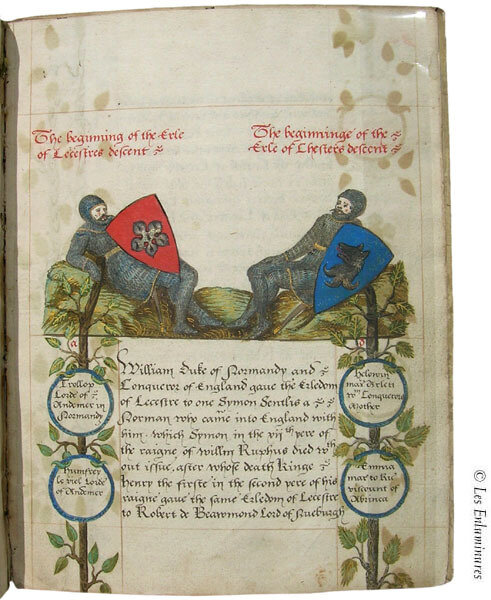 The beginning of the Erle
of Lecestres descent
The beginninge of the
Erle of Chesters descent
a
Trollop
Lord of
Andemer in
Normandy
William Duke of Normandy and
Conqueror of England gaue the Erledom
of Lecestre to one Symon Sentlis a
Norman who came into England with
him. which Symon in the vijth yere of
the raigne of Willm Ruphus died wth
out issue, after whose death Kinge
henry the firste in the second yere of his
raigne gaue the same Erledom of Lecestre
to Robert de Beawmond Lord of Nueburgh
Helowin
mar Arlett
Wm Conquerors
Mother
humfrey
le viel Lorde
of Andemer
Emma
mar to Ric
viscount of
Abrinca
© Les Enluminures